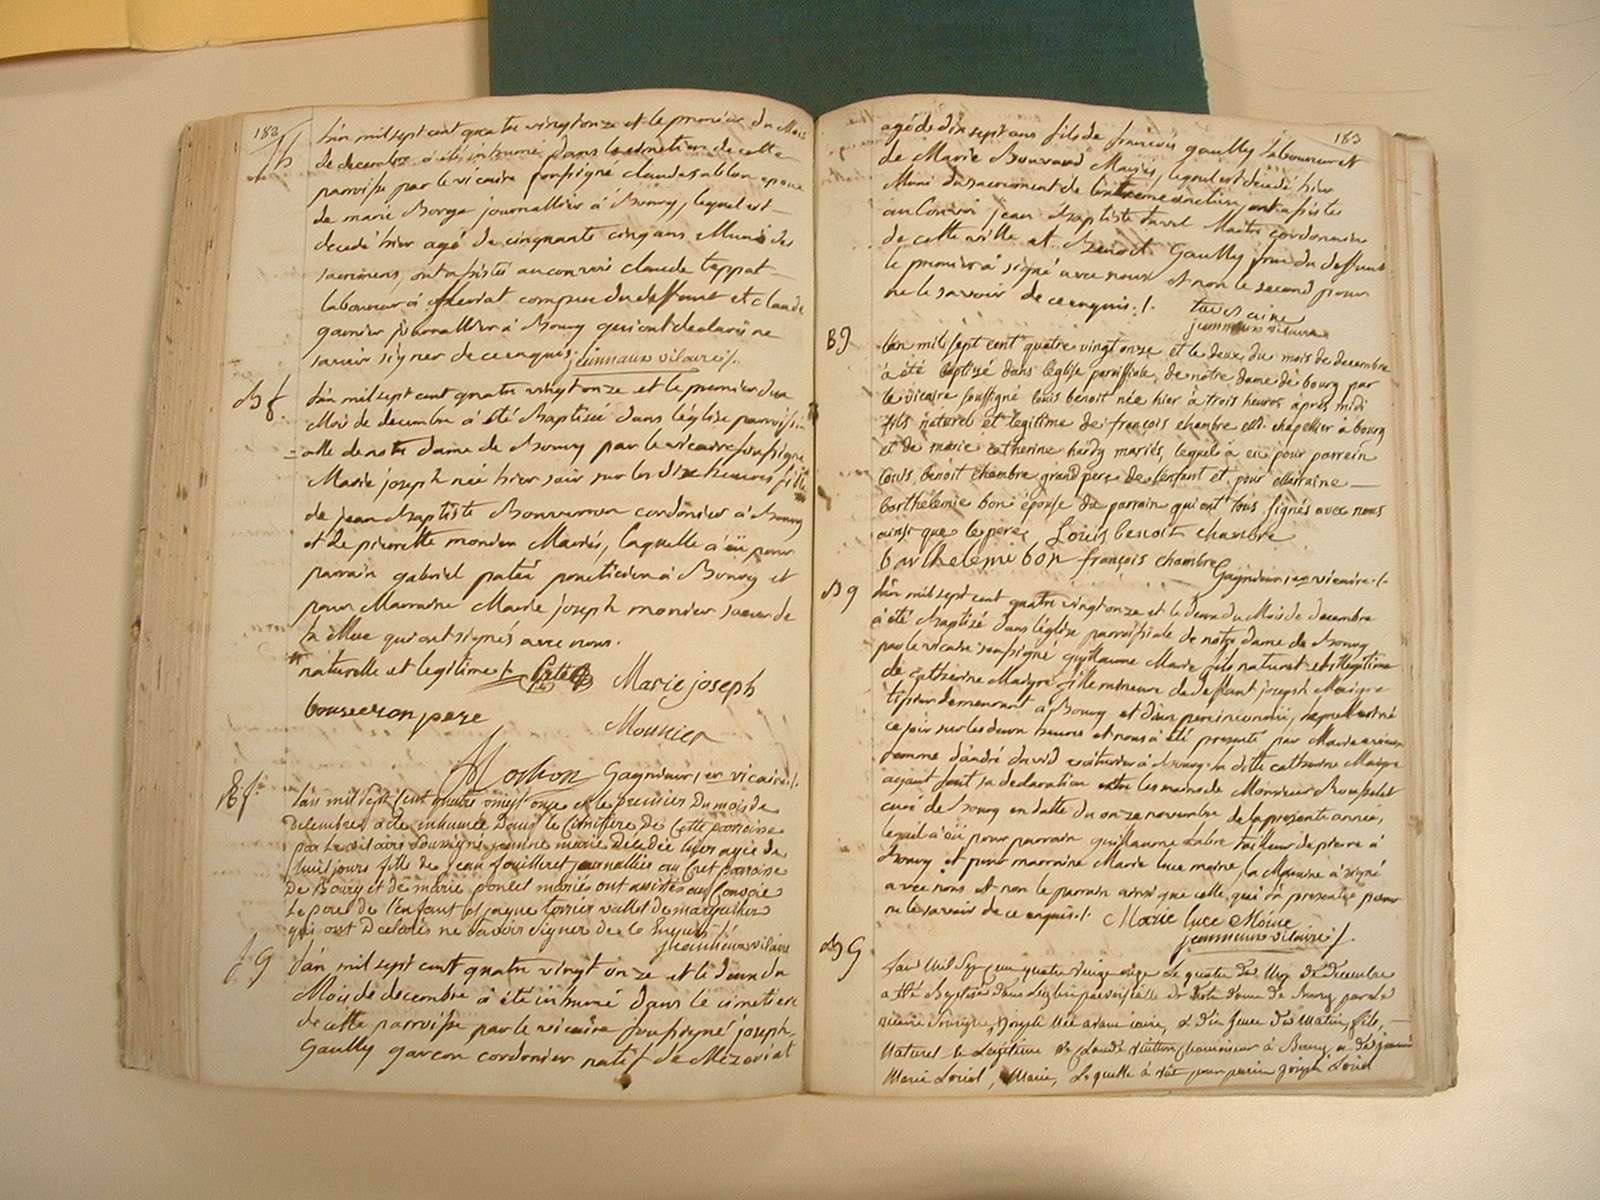 182
L'an mil sept cent quatre vingt onze et le premier du Mois
de decembre a été inhumé dans le cimetiere de cette
parroisse par le vicaire soussigné claude sablon epoux
de marie Borga journallier à Bourg, lequel est
decedé hier agé de cinquante cinq ans Muni des
sacremens, ont assisté au convoi claude teppat
laboureur à fleriat compere du deffunt et claude
garnier journallier à Bourg qui ont declaré ne
savoir signer de ce enquis jeunnaux vicaire ./.
L'an mil sept cent quatre vingt onze et le premier du
Mois de decembre a été Baptisée dans l'église parroissi
alle de notre dame de Bourg par le vicaire soussigné
Marie joseph née hier soir sur les dix heures fille
de jean Baptiste cordonier à Bourg
et de pierrette monier Mariés, laquelle a eü pour
parrain gabriel praticien à Bourg et
pour Marraine Marie joseph monier soeur de
la Mere qui ont signés avec nous.
naturelle et legitime Marie joseph
pere Monnier
Gagnieur, vicaire ./.
L'an mil sept Cent quatre vingt onze et le premier Du mois de
Decembre a été inhumée Dans le Cimetiere De Cette parroisse
par Le vicaire soussigné jeanne marie Decedée hier agée de
huit jours fille de jean journallier au Cret parroisse
De Bourg et de marie poncet mariés ont assistés au Convoie
Le pere de l'enfant et jaque terrier vallet De
qui ont Declarés ne savoir signer de Ce Enquis ./.
jeunnaux vicaire
L'an mil sept cent quatre vingt onze et le deux du
Mois de decembre a été inhumé dans le cimetiere
de cette parroisse par le vicaire soussigné joseph
Gaully garcon cordonier natif de Mézeriat
183
agé de dix sept ans fils de francois gaully laboureur et
de Marie Bouvard Mariés, lequel est decedé hier
Muni du sacrement de l'extreme onction, ont assisté
au Convoi jean Baptiste Maitre cordonnier
de cette ville et Benoit Gaully frere du deffunt
le premier a signé avec nous et non le second pour
ne le savoir de ce enquis ./.
jeunnaux vicaire
L'an mil sept cent quatre vingt onze et le deux du mois de decembre
à été baptisé dans l'église paroissiale de nôtre dame de bourg par
le vicaire soussigné louis benoit née hier à trois heures après midi
fils naturel et legitime de françois chambre chapellier à bourg
et de marie catherine hardy mariés, lequel à eü pour parrein
louis benoit chambre grand pere de l'enfant et pour Marraine
barthelemie bon épouse du parrain qui ont tous signés avec nous
ainsi que le pere, Louis benoit chambre
barthelemi bon françois chambre
Gagnieur, vicaire ./.
L'an mil sept cent quatre vingt onze et le deux du Mois de decembre
à été Baptizé dans l'église parroissiale de notre dame de Bourg
par le vicaire soussigné guillaume Marie fils naturel et illegitime
de Catherine Maigre fille mineure de deffunt joseph Maigre
tissier demeurant à Bourg et d'un pere inconnü, lequel est né
ce jour sur les deux heures et nous a été presenté par Marie
femme d'andré david voiturier à Bourg la ditte catherine Maigre
ayant fait sa declaration entre les mains de Monsieur Rousselet
curé de Bourg en datte du onze novembre de la presente année,
lequel a eü pour parrain guillaume Labre tailleur de pierre à
Bourg et pour marraine Marie luce moine, la Maraine a signé
avec nous et non le parrain ainsi que celle qui l'a presenté pour
ne le savoir de ce enquis ./. Marie luce Moine
jeunnaux vicaire ./.
L'an Mil Sept cent quatre vingt onze Le quatre du Moy de Decembre
a Eté Baptisé dans L'eglise paroissialle de Notre dame de Bourg par le
vicaire Soussigné, joseph Né avant hier, à dix heure du Matin, fils,
Naturel et Legitime de Claude à Bourg, et de
Marie Loriol, Mariés, Lequelle à eüt pour parin joseph Loriol